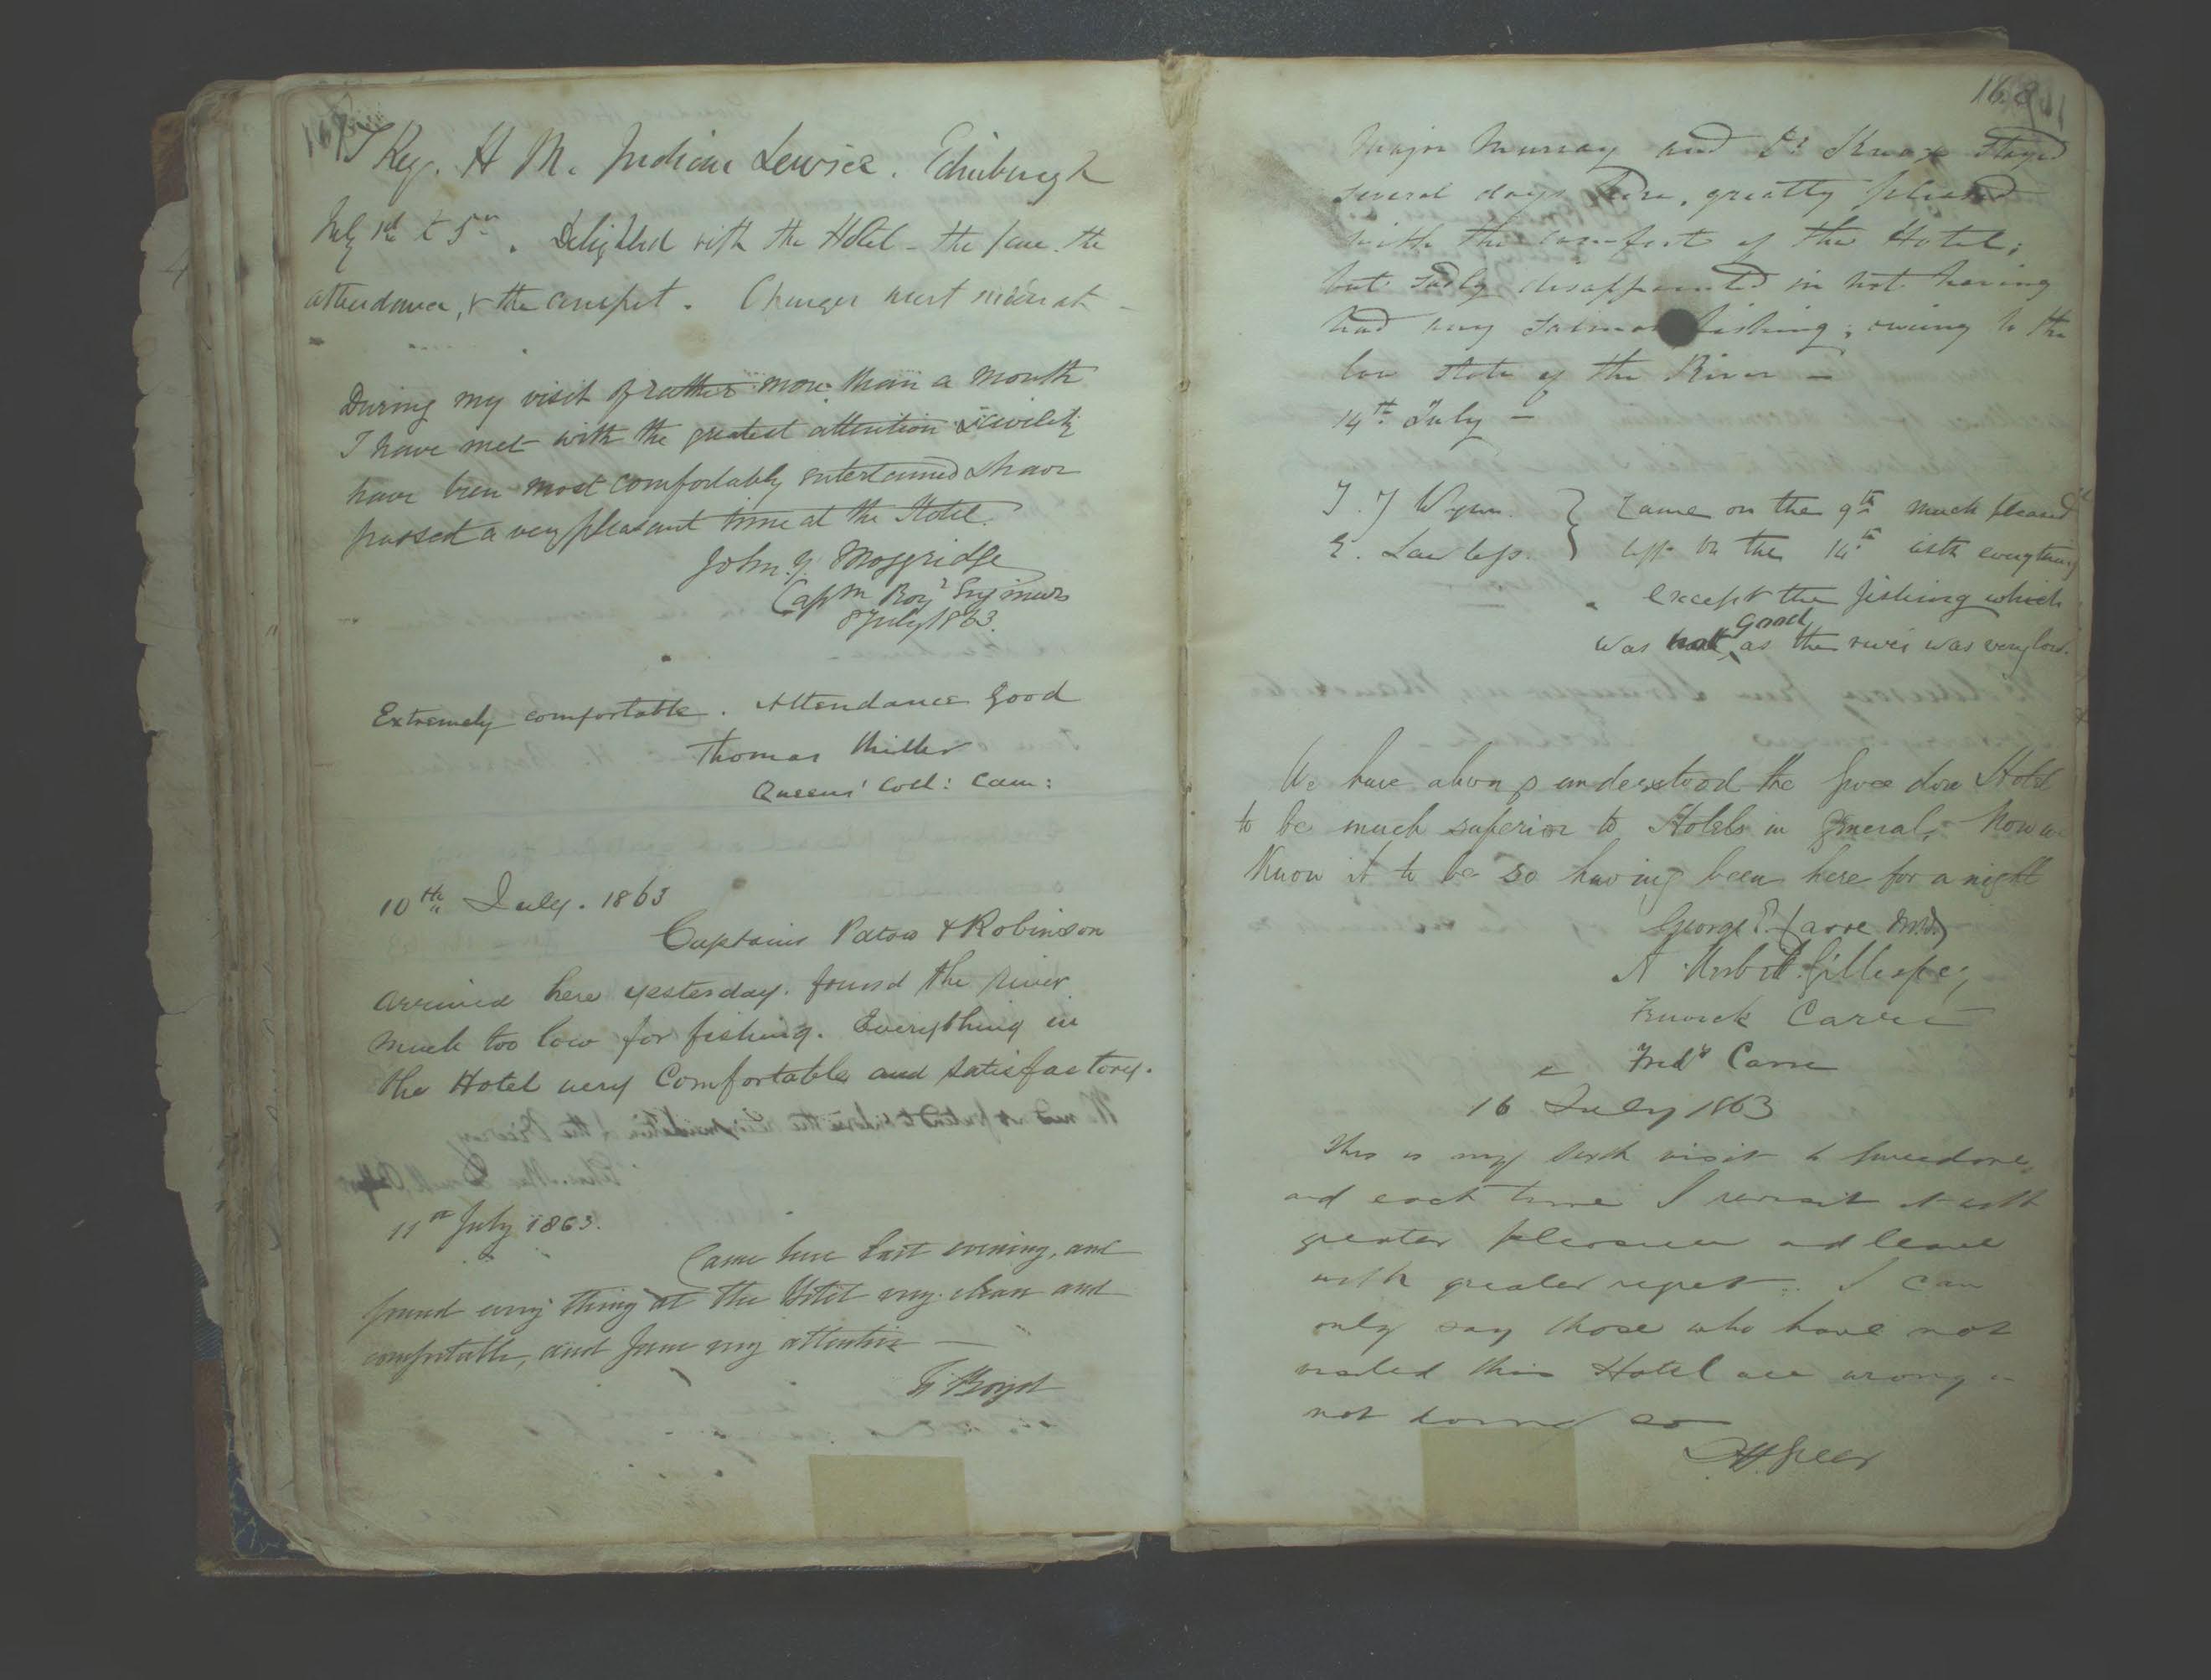 T Key. H M. Indian Service. Edinburgh
July 1st to 5th. Delighted with the Hotel - the fare. the
attendance, & the comfort. Charges most moderate -
During my visit of rather more than a month
I have met with the greatest attention & civility
have been most comfortably entertained & have
passed a very pleasant time at the Hotel.
John Y. Moggridge
Captn Royl Engineers
8 July 1863.
Extremely comfortable. Attendance good
Thomas Miller
Queens' Coll: Cam:
10th July. 1863
Captains Paton & Robinson
arrived here yesterday. found the river
much too low for fishing. Everything in
the Hotel very Comfortable and satisfactory.
11th July 1863.
Came here last evening, and
found every thing at the Hotel very clean and
comfortable, and fare very attentive -
Boyd
168
Major Murray and Dr Knox stayed
several days here, greatly pleased
with the comfort of the Hotel;
but sadly disappointed in not having
had any salmon fishing; owing to the
low state of the River -
14th July -
J. J Wynn. } Came on the 9th much pleased
E. Lawless. } left on the 14th with everything
except the fishing which
was not good as the river was very low.
We have always understood the Gweedore Hotel
to be much superior to Hotels in General, Now we
Know it to be so having been here for a night
George T. Carre M.D.
A Nesbitt Gillespie,
Fenwick Carre
Fredk Carre
16 July 1863
This is my sixth visit to Gweedore
and each time I revisit it with
greater pleasure and leave
with greater regret. I can
only say those who have not
visited this Hotel are wrong in
not having done so